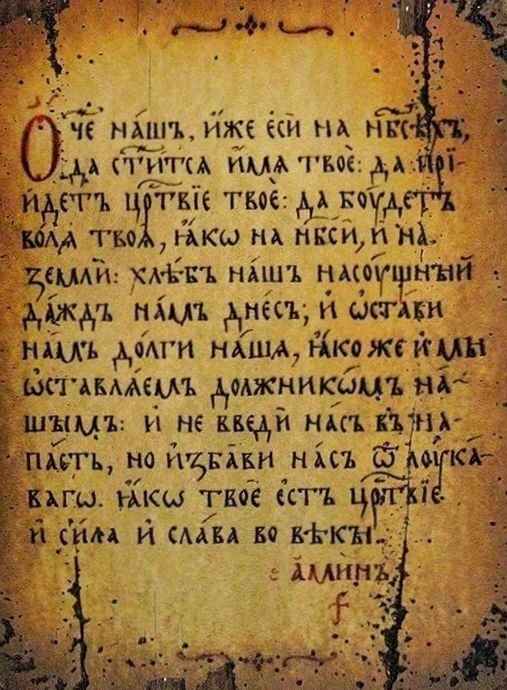 Ѻ҆ч҃е на́шъ, и҆́же є҆сѝ на нб҃сѣ́хъ,
да ст҃и́тсѧ и҆́мѧ твоѐ: да прїи-
и́детъ црⷭ҇твїе твоѐ: да бꙋ́детъ
во́лѧ твоѧ̀, ꙗ҆́кѡ на нб҃сѝ, и҆ на
землѝ: хлѣ́бъ на́шъ насꙋ́щный
да́ждь на́мъ дне́сь; и҆ ѡ҆ста́ви
на́мъ до́лги на́шѧ, ꙗ҆́коже и҆ мы̀
ѡ҆ставлѧ́емъ должникѡ́мъ на́-
шымъ: и҆ не введѝ на́съ въ на-
па́сть, но и҆зба́ви на́съ ѿ лꙋка́-
вагѡ. ꙗ҆́кѡ твоѐ є҆́сть црⷭ҇твїе
и҆ си́ла и҆ сла́ва во вѣ́ки.
а҆ми́нь